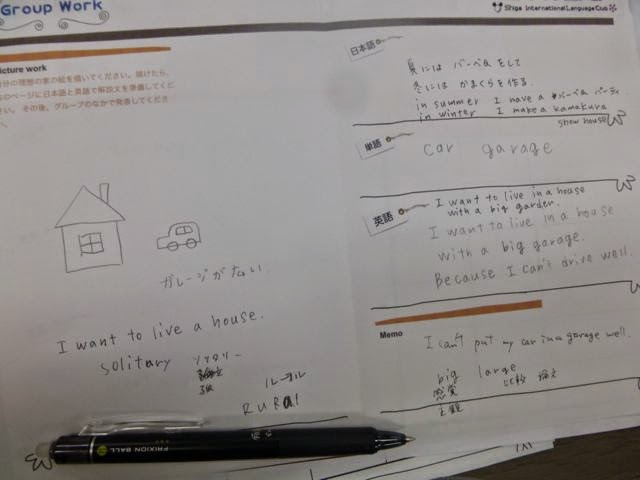 Group Work
Shiga International Language Club
icture work
分の理想の家の絵を描いてください。描けたら、
のページに日本語と英語で解説文を準備してくだ
さい。その後、グループのなかで発表してくださ
い。
ガレージが広い
I want to live a house.
solitary ソリタリー
ルーラル
RURal
FRIXION BALL
日本語
夏には バーベQ をして
冬には かまくらを作る.
in summer I have a バーベQ パーティ
in winter I make a kamakura
snow house
単語
car garage
英語
I want to live in a house
with a big garden.
I want to live in a house
with a big garage.
Because I can't drive well.
Memo
I can't put my car in a garage well.
big large
感覚 比較 論文
主観